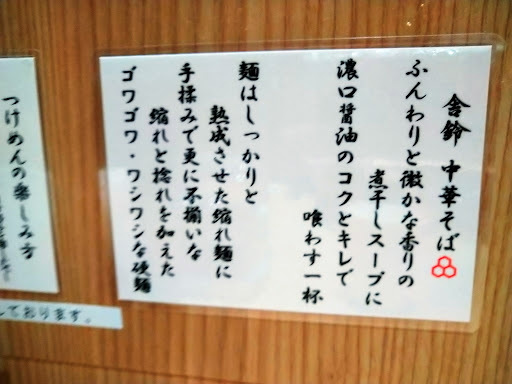 舎鈴 中華そば
ふんわりと微かな香りの
煮干しスープに
濃口醤油のコクとキレで
喰わす一杯
麺はしっかりと
熟成させた縮れ麺に
手揉みで更に不揃いな
縮れと捻れを加えた
ゴワゴワ・ワシワシな硬麺
つけめんの楽しみ方
ております。